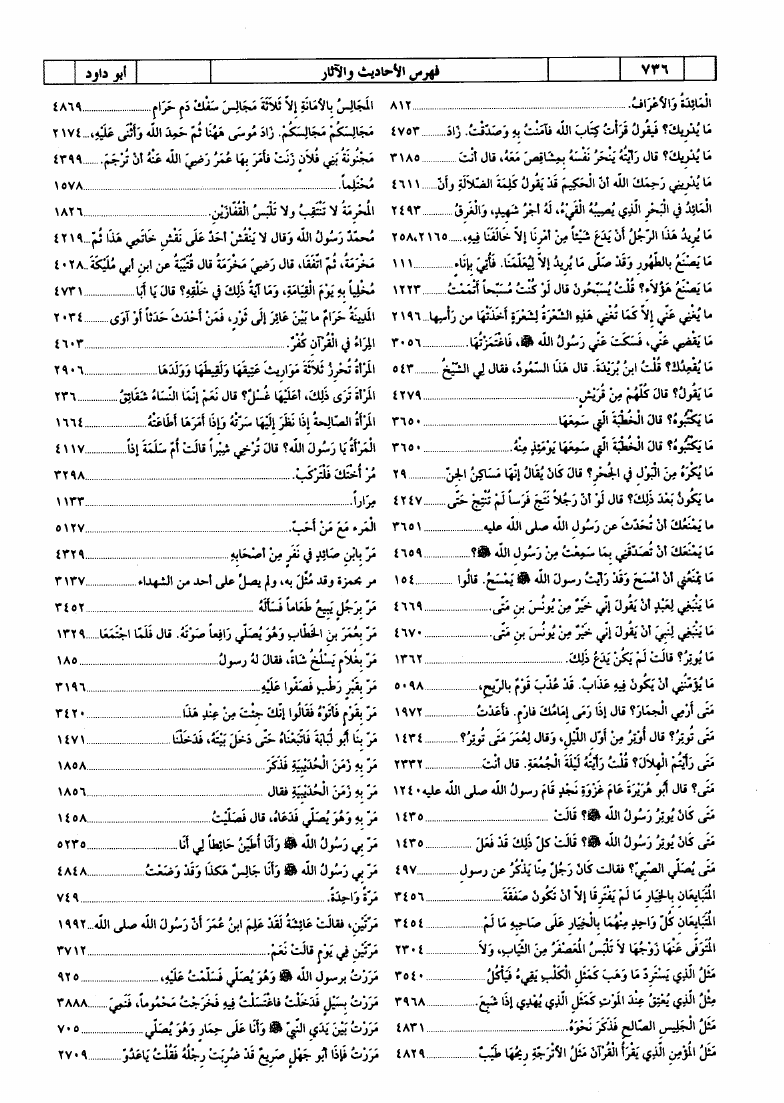 ٧٣٦
فهرس الأحاديث والآثار
أبو داود
الْمَائِدَةُ وَالأَعْرَافُ. ٨١٢
مَا يُدْرِيكَ؟ فَيَقُولُ قَرَأْتُ كِتَابَ الله فَآمَنْتُ بِهِ وَصَدَّقْتُ. زَادَ ٤٧٥٣
مَا يُدْرِيكَ؟ قال رَأَيْتُهُ يَنْحَرُ نَفْسَهُ بِمَشَاقِصَ مَعَهُ، قال أنْتَ ٣١٨٥
مَا يُدْرِيني رَحِمَكَ الله أنّ الْحَكِيمَ قَدْ يَقُولُ كَلِمَةَ الضّلاَلَةِ وأنّ ٤٦١١
المَائِدُ في الْبَحْرِ الّذِي يُصِيبُهُ القَيْءُ، لَهُ أجْرُ شَهِيدٍ، وَالْغَرِقُ ٢٤٩٣
مَا يُرِيدُ هَذَا الرّجُلُ أنْ يَدَعَ شَيْئاً مِنْ أمْرِنَا إلاّ خَالَفَنَا فِيهِ، ٢٥٨،٢١٦٥
مَا يَصْنَعُ بالطّهُورِ وَقَدْ صَلّى مَا يُرِيدُ إلاّ لِيُعَلّمَنَا. فَأُتِيَ بإِنَاءٍ ١١١
مَا يَصْنَعُ هَؤُلاَءِ؟ قُلْتُ يُسَبّحُونَ قال لَوْ كُنْتُ مُسَبّحاً أتْمَمْتُ ١٢٢٣
مَا يُغْنِي عَنّي إلاّ كَمَا تُغْنِي هَذِهِ الشّعْرَةُ لِشَعْرَةٍ أخَذَتْهَا من رَأسِهَا ٢١٩٦
مَا يَقْضِي عَنّي، فَسَكَتَ عَنّي رَسُولُ الله ﷺ، فَاغْتَمَزْتُهَا. ٣٠٥٦
مَا يُقْعِدُكَ؟ قُلْتُ ابنُ بُرَيْدَةَ. قال هَذَا السّمُودُ، فقال لِي الشّيْخُ ٥٤٣
مَا يَقُولُ؟ قَالَ كُلّهُمْ مِنْ قُرَيْشٍ. ٤٢٧٩
مَا يَكْتُبُوهُ؟ قالَ الْخُطْبَةَ الّتي سَمِعَهَا ٣٦٥٠
مَا يَكْتُبُوهُ؟ قالَ الْخُطْبَةَ الّتي سَمِعَهَا يَوْمَئِذٍ مِنْهُ. ٣٦٥٠
مَا يُكْرَهُ مِنَ الْبَوْلِ في الْجُحْرِ؟ قال كَانَ يُقَالُ إنّهَا مَسَاكِنُ الْجِنّ ٢٩
ما يَكُونُ بَعْدَ ذَلِكَ؟ قال لَوْ أنّ رَجُلاً نَتَجَ فَرَساً لَمْ تُنْتَجْ حَتّى ٤٢٤٧
ما يَمْنَعُكَ أنْ تُحَدّثَ عن رَسُولِ الله صلى الله عليه ٣٦٥١
مَا يَمْنَعُكَ أنْ تُصَدّقَنِي بِمَا سَمِعْتُ مِنْ رَسُولِ الله ﷺ؟ ٤٦٥٩
مَا يَمْنَعُني أنْ أمْسَحَ وَقَدْ رَأيْتُ رسولَ الله ﷺ يَمْسَحُ. قالُوا ١٥٤
مَا يَنْبَغِي لِعَبْدٍ أنْ يَقُولَ إنّي خَيْرٌ مِنْ يُونُسَ بنِ مَتّى. ٤٦٦٩
مَا يَنْبَغِي لِنَبِيّ أنْ يَقُولَ إنّي خَيْرٌ مِنْ يُونُسَ بنِ مَتّى. ٤٦٧٠
مَا يُوتِرُ؟ قالَتْ لَمْ يَكُنْ يَدَعُ ذَلِكَ. ١٣٦٢
مَا يُؤَمّنُنِي أنْ يَكُونَ فِيهِ عَذَابٌ. قَدْ عُذّبَ قَوْمٌ بالرّيحِ، ٥٠٩٨
مَتَى أرْمِي الْجِمَارَ؟ قال إذَا رَمَى إمَامُكَ فَارْمِ. فأعَدْتُ ١٩٧٢
مَتَى تُوتِرُ؟ قال أُوتِرُ مِنْ أوّلِ اللّيْلِ، وَقال لِعُمَرَ مَتَى تُوتِرُ؟ ١٤٣٤
مَتَى رَأيْتُمْ الْهِلاَلَ؟ قُلْتُ رَأيْتُهُ لَيْلَةَ الْجُمُعَةِ. قال أنْتَ ٢٣٣٢
مَتَى؟ قال أبُو هُرَيْرَةَ عَامَ غَزْوَةِ نَجْدٍ قَامَ رسولُ الله صلى الله عليه ١٢٤٠
مَتَى كَانَ يُوتِرُ رَسُولُ الله ﷺ؟ قَالَتْ ١٤٣٥
مَتَى كَانَ يُوتِرُ رَسُولُ الله ﷺ؟ قَالَتْ كلّ ذَلِكَ قَدْ فَعَلَ ١٤٣٥
مَتَى يُصَلّي الصّبِيّ؟ فقالت كَانَ رَجُلٌ مِنّا يَذْكُرُ عن رسولِ ٤٩٧
الْمُتَبَايِعَانِ بالْخِيَارِ مَا لَمْ يَفْتَرِقَا إلاّ أنْ تَكُونَ صَفْقَةَ ٣٤٥٦
المُتَبَايِعَانِ كُلّ وَاحِدٍ مِنْهُمَا بالْخِيَارِ عَلَى صَاحِبِهِ مَا لَمْ ٣٤٥٤
المُتَوَفّى عَنْهَا زَوْجُهَا لاَ تَلْبَسُ الْمُعَصْفَرَ مِنَ الثّيَابِ، وَلاَ ٢٣٠٤
مَثَلُ الّذِي يَسْتَرِدّ مَا وَهَبَ كَمَثَلِ الْكَلْبِ يَقِيءُ فَيَأْكُلُ ٣٥٤٠
مِثْلُ الّذِي يُعْتِقُ عِنْدَ الْمَوْتِ كَمَثَلِ الّذِي يُهْدِي إذَا شَبِعَ. ٣٩٦٨
مَثَلُ الْجَلِيسِ الصّالحِ فَذَكَرَ نَحْوَهُ. ٤٨٣١
مَثَلُ الْمُؤْمِنِ الّذِي يَقْرَأُ الْقُرْآنَ مَثَلُ الأُتْرُجّةِ رِيحُهَا طَيّبٌ ٤٨٢٩
المَجَالِسُ بالأمَانَةِ إلاّ ثَلاَثَةَ مَجَالِسَ سَفْكُ دَمٍ حَرَامٍ ٤٨٦٩
مَجَالِسَكُمْ مَجَالِسَكُمْ. زَادَ مُوسَى هَهُنَا ثُمّ حَمِدَ الله وَأثْنَى عَلَيْهِ، ٢١٧٤
مَجْنُونَةُ بَنِي فُلاَنٍ زَنَتْ فأمَرَ بِهَا عُمَرُ رَضِيَ الله عَنْهُ أنْ تُرْجَمَ. ٤٣٩٩
مُحْتَلِماً. ١٥٧٨
المُحْرِمَةُ لا تَنْتَقِبُ ولا تَلْبَسُ القُفّازَيْنِ. ١٨٢٦
مُحمّدٌ رَسُولُ الله وَقال لا يَنْقُشْ أحَدٌ عَلَى نَقْشِ خَاتَمِي هَذَا ثُمّ ٤٢١٩
مَخْرَمَةُ، ثُمّ اتّفَقَا، قال رَضِيَ مَخْرَمَةُ قال قُتَيْبَةُ عن ابنِ أبي مُلَيْكَةَ ٤٠٢٨
مُخْلِياً بِهِ يَوْمَ الْقِيَامَةِ، وَمَا آيَةُ ذَلِكَ في خَلْقِهِ؟ قالَ يَا أبَا ٤٧٣١
المَدِينَةُ حَرَامٌ ما بَيْنَ عَائِرَ إلَى ثَوْرٍ، فَمَنْ أحْدَثَ حَدَثاً أوْ آوَى ٢٠٣٤
المِرَاءُ في الْقُرْآنِ كُفْرٌ. ٤٦٠٣
المَرْأةُ تُحْرِزُ ثَلاَثَةَ مَوَارِيثَ عَتِيقَهَا وَلَقِيطَهَا وَوَلَدَهَا ٢٩٠٦
المَرْأةُ تَرَى ذَلِكَ، أعَلَيْهَا غُسْلٌ؟ قال نَعَمْ إنّمَا النّسَاءُ شَقَائِقُ ٢٣٦
المَرْأةُ الصّالِحَةُ إذَا نَظَرَ إلَيْهَا سَرّتْهُ وَإذَا أمَرَهَا أطَاعَتْهُ ١٦٦٤
الْمَرْأةُ يَا رَسُولَ الله؟ قالَ تُرْخِي شِبْراً قالَتْ أُمّ سَلَمَةَ إذاً ٤١١٧
مُرْ أُخْتَكَ فَلْتَرْكَبْ. ٣٢٩٨
مِرَاراً. ١١٣٣
الْمَرءِ مَعَ مَنْ أحَبّ. ٥١٢٧
مَرّ بابنِ صَائِدٍ في نَفَرٍ مِنْ أصْحَابِهِ ٤٣٢٩
مر بحمزة وقد مُثّلَ به، ولم يصلّ على أحد من الشهداء ٣١٣٧
مَرّ بِرَجُلٍ يَبِيعُ طَعَاماً فَسَألَهُ ٣٤٥٢
مَرّ بِعُمَرَ بنِ الْخَطّابِ وَهُوَ يُصَلّي رَافِعاً صَوْتَهُ. قال فَلَمّا اجْتَمَعَا ١٣٢٩
مَرّ بِغُلاَمٍ يَسْلُخُ شَاةً، فقالَ لهُ رسولُ ١٨٥
مَرّ بِقَبْرٍ رَطْبٍ فَصَفّوا عَلَيْهِ ٣١٩٦
مَرّ بِقَوْمٍ فَأتَوْهُ فَقالُوا إنّكَ جِئْتَ مِنْ عِنْدِ هَذَا ٣٤٢٠
مَرّ بِنَا أبُو لُبَابَةَ فَاتّبَعْنَاهُ حَتّى دَخَلَ بَيْتَهُ، فَدَخَلْنَا ١٤٧١
مَرّ بِهِ زَمَنَ الْحُدَيْبِيَةِ فَذَكَرَ ١٨٥٨
مَرّ بِهِ زَمَنَ الْحُدَيْبِيَةِ فقال ١٨٥٦
مَرّ بِهِ وَهُوَ يُصَلّي فَدَعَاهُ، قال فَصَلّيْتُ ١٤٥٨
مَرّ بي رَسُولُ الله ﷺ وَأنَا أُطَيّنُ حَائِطاً لِي أنَا ٥٢٣٥
مَرّ بي رَسُولُ الله ﷺ وَأنَا جَالِسٌ هَكَذَا وَقَدْ وَضَعْتُ ٤٨٤٨
مَرّةً وَاحِدَةً. ٧٤٩
مَرّتَيْنِ، فقالَتْ عَائِشَةُ لَقَدْ عَلِمَ ابنُ عُمَرَ أنّ رَسُولَ الله صلى الله ١٩٩٢
مَرّتَيْنِ في يَوْمٍ قالَتْ نَعَمْ. ٣٧١٢
مَرَرْتُ برسولِ الله ﷺ وَهُوَ يُصَلّي فَسَلّمْتُ عَلَيْهِ، ٩٢٥
مَرَرْتُ بِسَيْلٍ فَدَخَلْتُ فاغْتَسَلْتُ فيهِ فَخَرَجْتُ مَحْمُوماً، فَنُمِيَ ٣٨٨٨
مَرَرْتُ بَيْنَ يَدَي النّبيّ ﷺ وَأنَا عَلَى حِمَارٍ وَهُوَ يُصَلّي ٧٠٥
مَرَرْتُ فَإذَا أبُو جَهْلٍ صَرِيعٌ قَدْ ضُرِبَتْ رِجْلُهُ فَقُلْتُ يَاعَدُوّ ٢٧٠٩